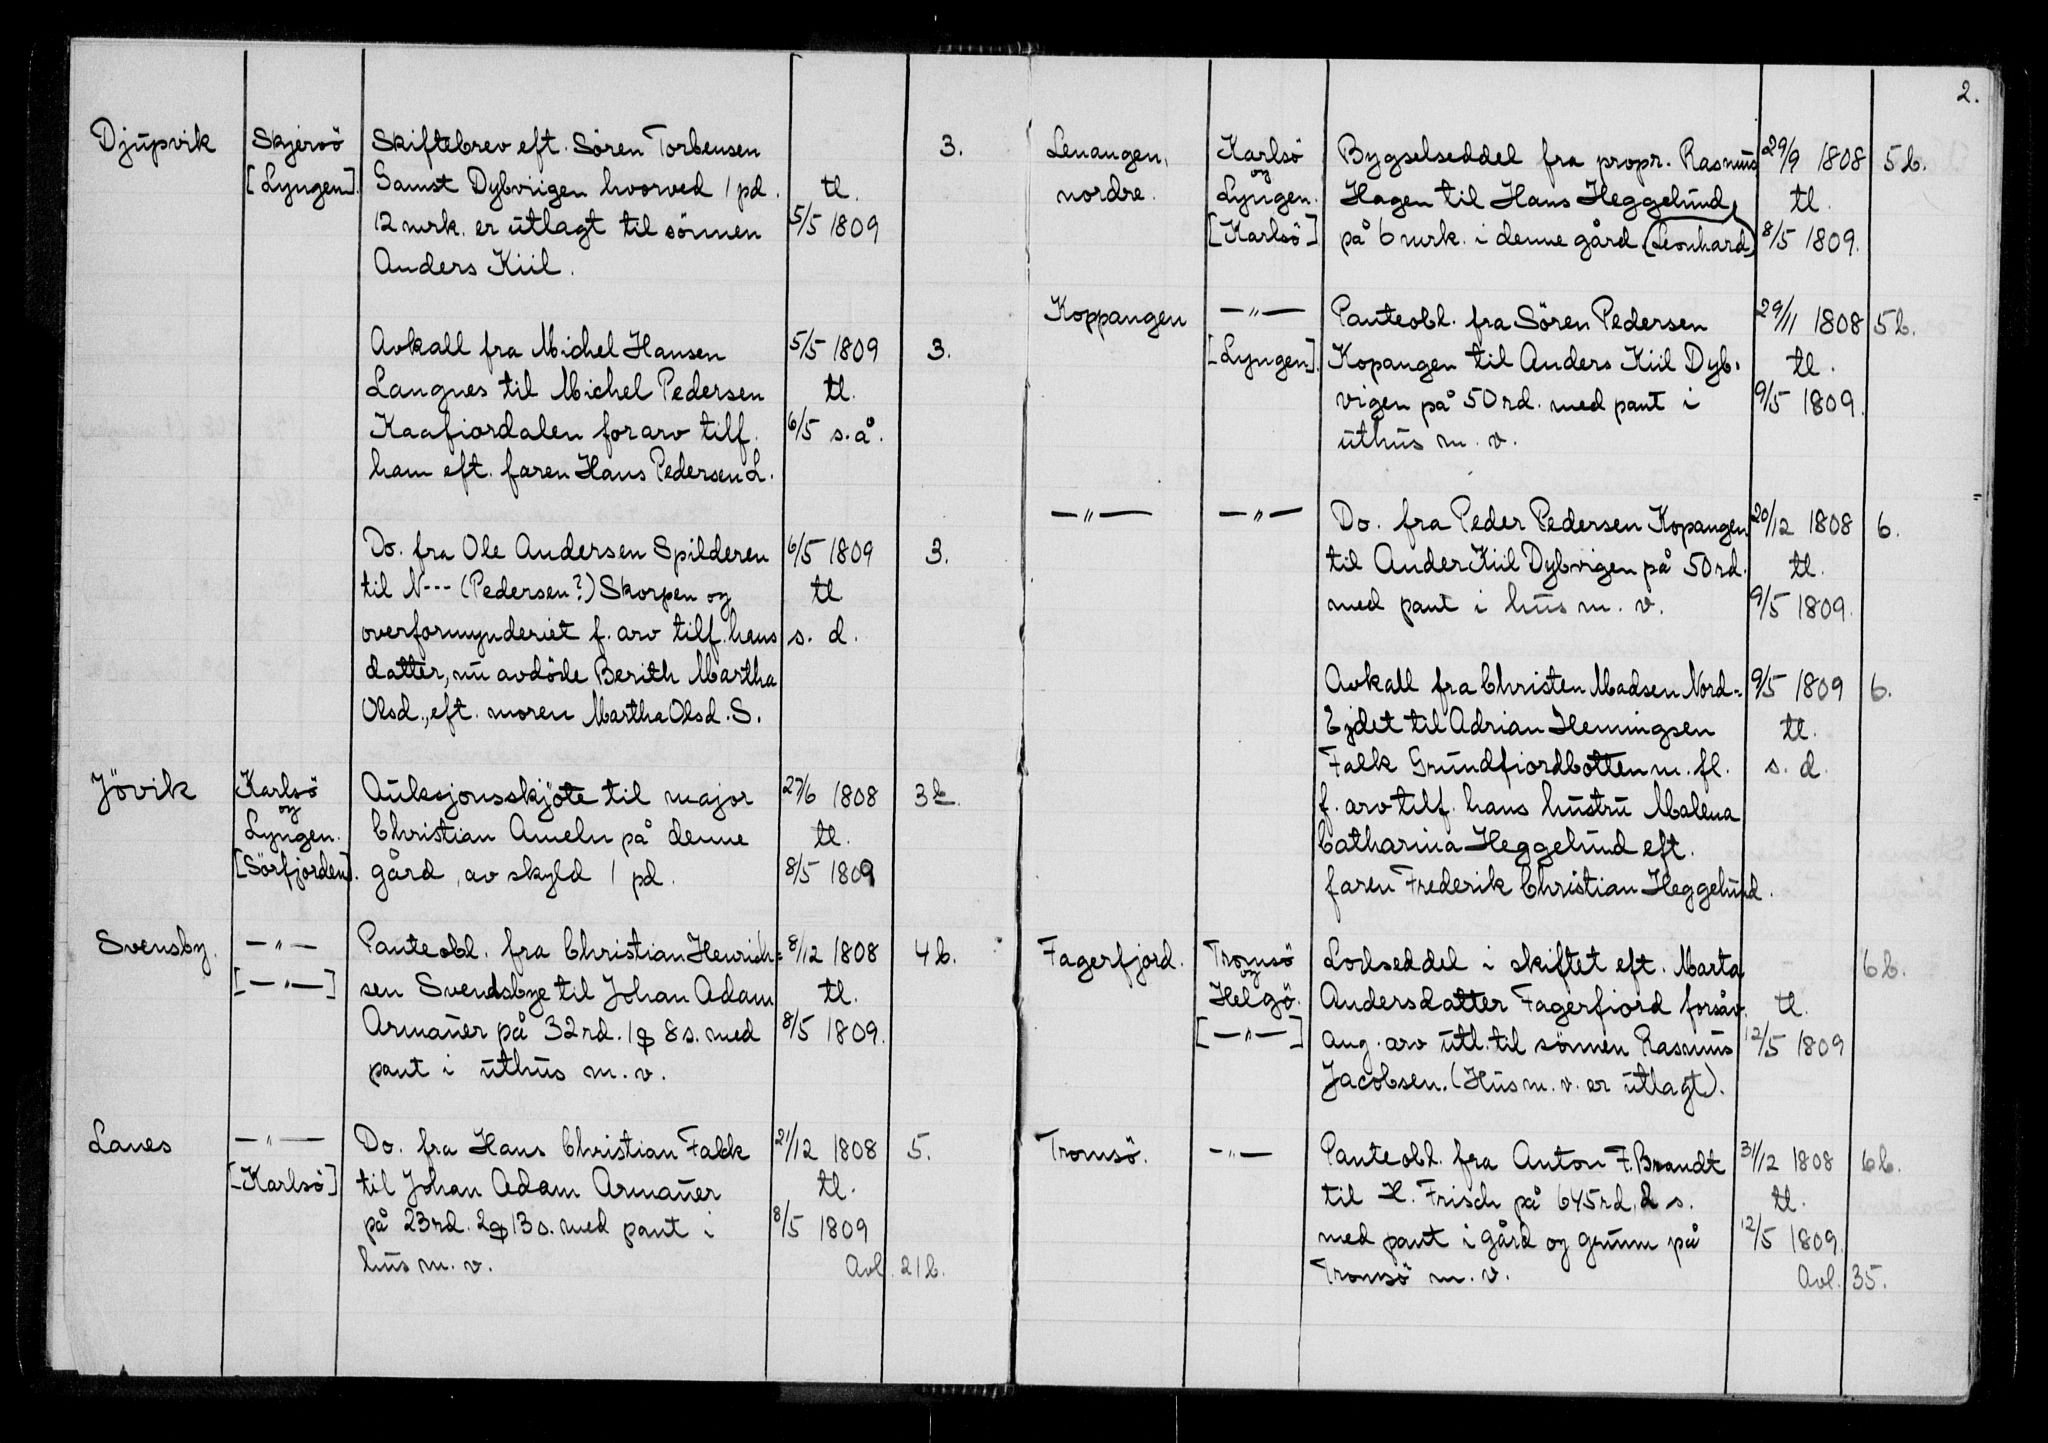 2.
Djupvik Skjervö Skiftebrev eft. Sören Torbensen 3.
[Lyngen]. Samst Dybviigen hvorved 1 pd. tl.
12 mrk. er utlagt til sönnen 5/5 1809
Anders Kiil.
Avkall fra Michel Hansen 5/5 1809 3.
Langnes til Michel Pedersen tl.
Kaafiordalen for arv tilf. 6/5 s.å.
ham eft. faren Hans Pedersen L.
Do. fra Ole Andersen Spilderen 6/5 1809 3.
til N--- (Pedersen?) Skorpen og tl
overformynderiet f. arv tilf. hans s. d.
datter, nu avdöde Berith Martha
Olsd., eft. moren Martha Olsd. S.
Jövik Karlsö Auksjonsskjöte til major 27/6 1808 3b.
og
Lyngen. Christian Ameln på denne tl.
[Sörfjorden]. gård, av skyld 1 pd. 8/5 1809
Svensby. —"— Panteobl. fra Christian Henrich= 8/12 1808 4b.
[—"—] sen Svendsbye til Johan Adam tl.
Armauer på 32 rd. 1 ꝑ 8 s. med 8/5 1809.
pant i uthus m. v.
Lanes —"— Do. fra Hans Christian Falck 21/12 1808 5.
[Karlsö] til Johan Adam Armauer tl.
på 23 rd. 2 ꝑ 13 s. med pant i 8/5 1809
hus m. v. Avl. 21b.
Lenangen, Karlsö Bygselseddel fra propr. Rasmus 29/9 1808 5b.
og
nordre. Lyngen. Hagen til Hans Heggelund, tl.
[Karlsö] på 6 mrk. i denne gård (Leonhard) 8/5 1809.
Koppangen —"— Panteobl. fra Sören Pedersen 29/11 1808 5b.
[Lyngen]. Kopangen til Anders Kiil Dyb- tl.
vigen på 50 rd. med pant i 9/5 1809.
uthus m. v.
—"— —"— Do. fra Peder Pedersen Kopangen 20/12 1808 6.
til Ander Kiil Dybvigen på 50 rd. tl.
med pant i hus m. v. 9/5 1809.
Avkall fra Christen Madsen Nord= 9/5 1809 6.
Ejdet til Adrian Hemingsen tl.
Falk Grundfiordbotten m. fl. s. d.
f. arv tilf. hans hustru Malena
Catharina Heggelund eft.
faren Frederik Christian Heggelund.
Fagerfjord. Tromsö Lodseddel i skiftet eft. Marta 6b.
og
Helgö. Andersdatter Fagerfiord forsåv. tl.
[—"—] ang. arv utl. til sönnen Rasmus 12/5 1809
Jacobsen. (Hus m. v. er utlagt).
Tromsö. —"— Panteobl. fra Anton F. Brandt 31/12 1808 6b.
til H. Frisch på 645 rd. 2 s. tl.
med pant i gård og grunn på 12/5 1809.
Tromsö m. v. Avl. 35.